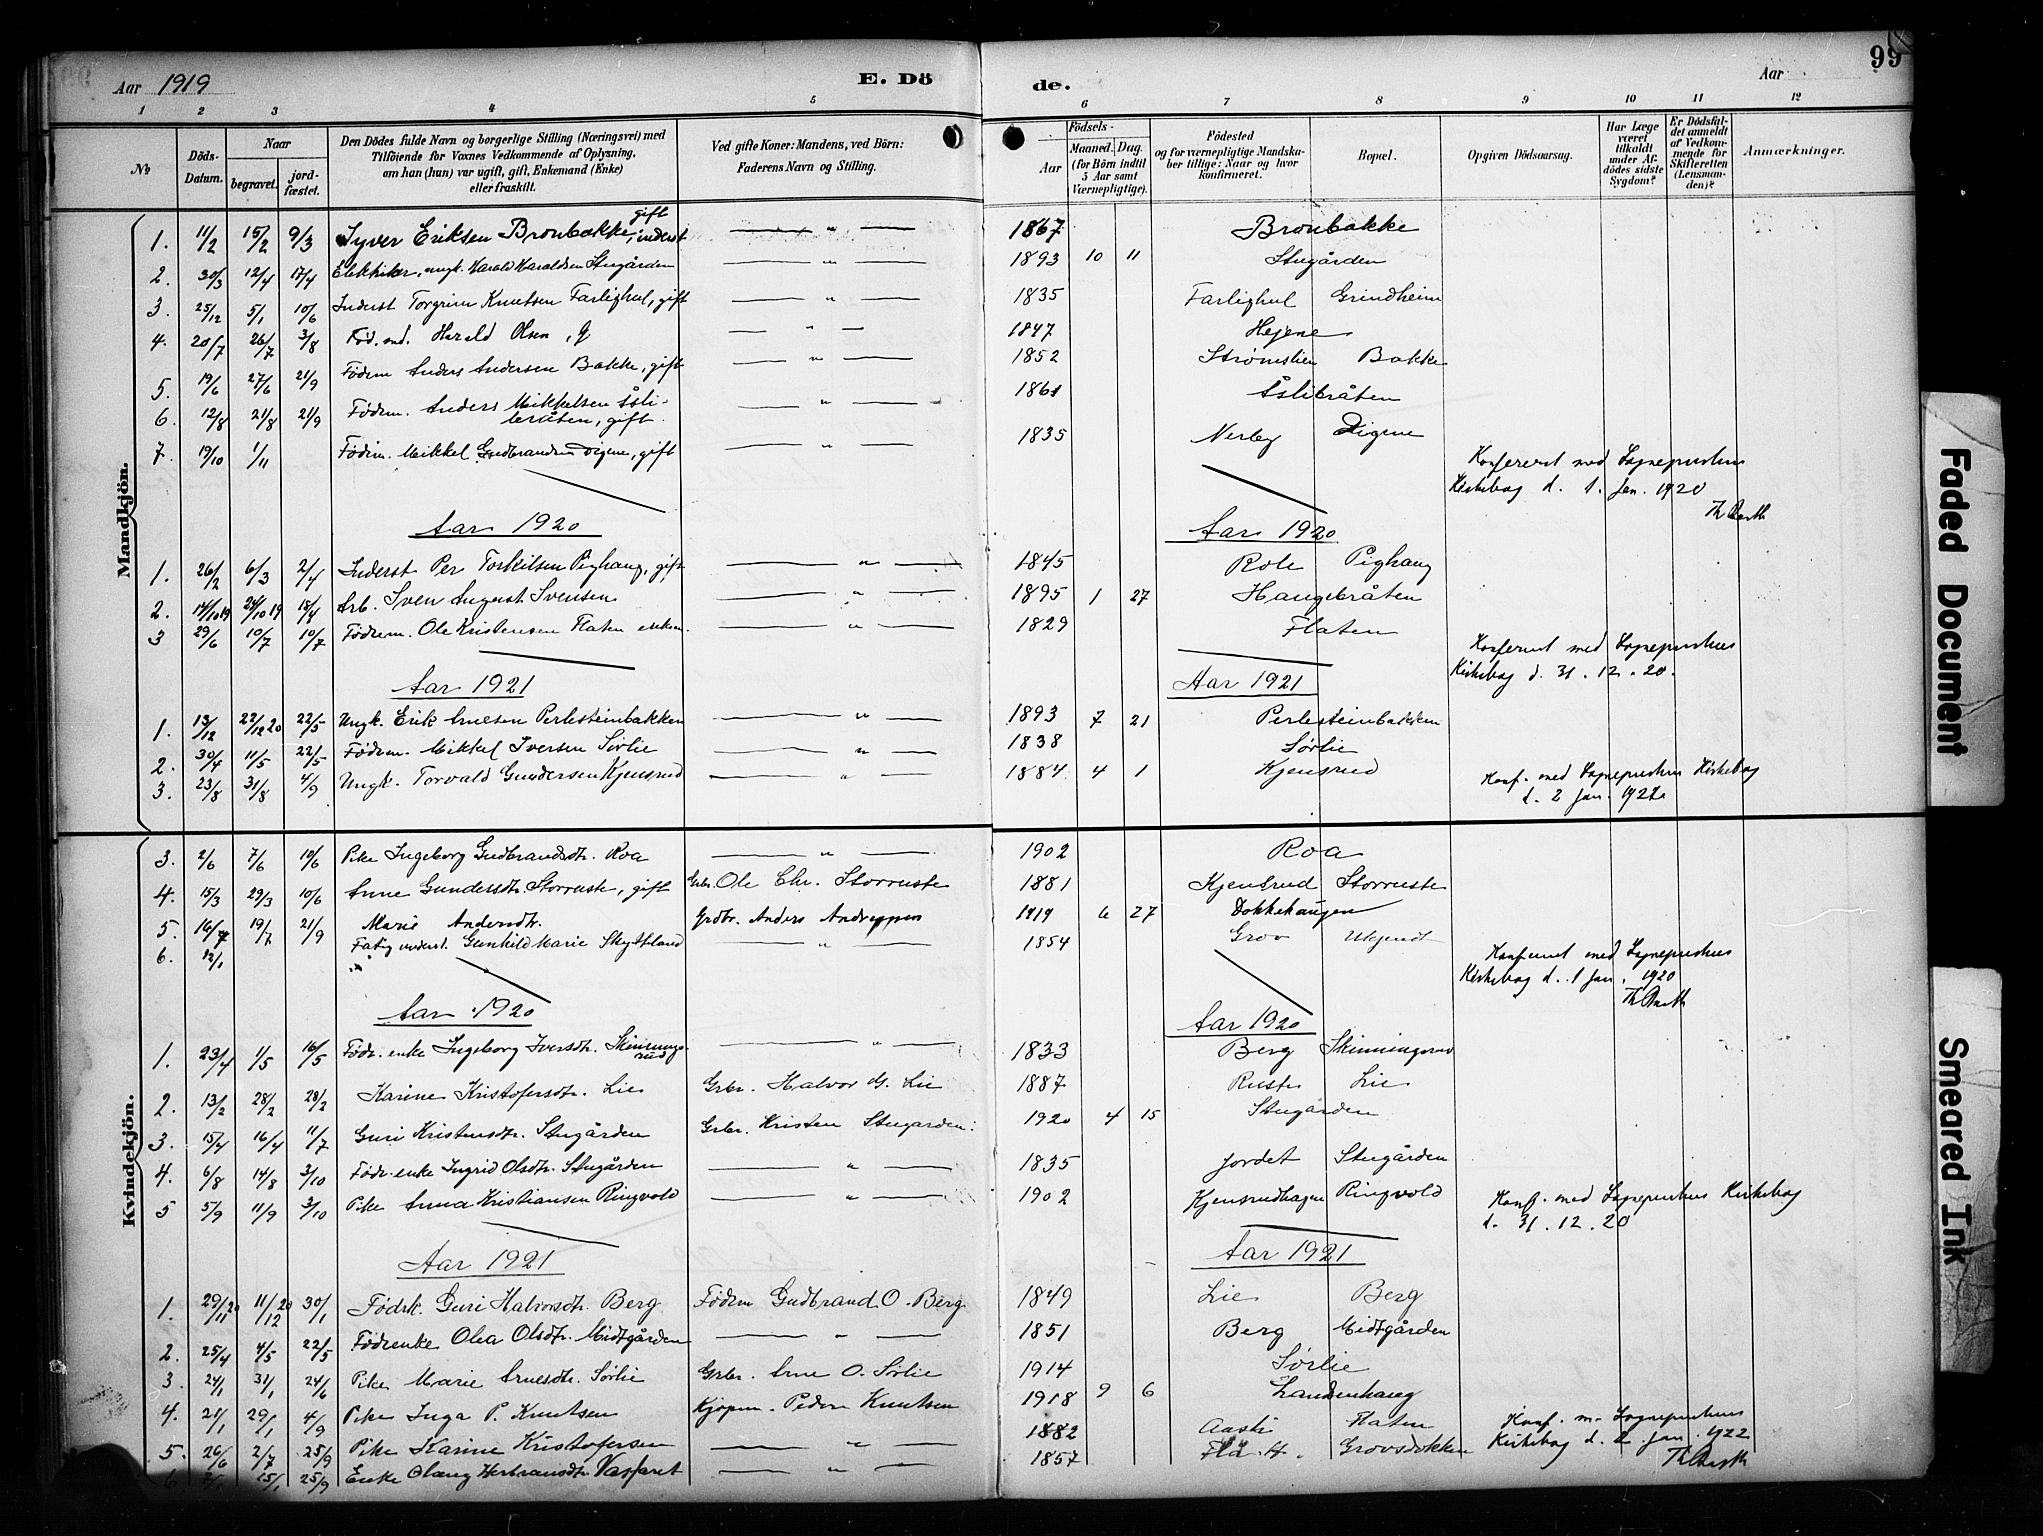 Aar 1919 E. Dö de. Aar 99
1 2 3 4 5 6 7 8 9 10 11 12
No Döds-Datum. Naar begravet. jordfæstet. Den Dödes fulde Navn og borgerlige Stilling (Næringsvei) med Tilföiende for Voxnes Vedkommende af Oplysning, om han (hun) var ugift, gift, Enkemand (Enke) eller fraskilt. Ved gifte Koner: Mandens, ved Börn: Faderens Navn og Stilling. Födsels- Aar Maaned. Dag. (for Börn indtil 5 Aar samt Værnepligtige). Födested og for værnepligtige Mandskaber tillige: Naar og hvor konfirmeret. Bopæl. Opgiven Dödsaarsag. Har Læge været tilkaldt under Afdödes sidste Sygdom? Er Dödsfaldet anmeldt af Vedkommende for Skifteretten (Lensmanden)? Anmærkninger.
Mandkjön.
1. 11/2 15/2 9/3 Syver Eriksen Bronbakke, inderst gift — " — 1867 Bronbakke
2. 30/3 12/4 17/4 Elektriker, ungk. Harald Haraldsen Stugården — " — 1893 10 11 Stugården
3. 25/12 5/1 10/6 Inderst Torgrim Knutsen Farlighul, gift — " — 1835 Farlighul Grindheim
4. 20/7 26/7 3/8 Fød.md. Harald Olsen, g — " — 1847 Hejene
5. 19/6 27/6 21/9 Födrm Anders Andersen Bakke, gift — " — 1852 Strømslien Bakke
6. 12/8 21/8 21/9 Födrm. Anders Mikkelsen Åsli-
bråten, gift — " — 1861 Åslibråten
7. 19/10 1/11 Födrm. Mikkel Gudbrandsen Digene, gift — " — 1835 Nerby Digene
Konferert med Sogneprestens
Kirkebog d. 1. Jan. 1920
Th Barth
Aar 1920 Aar 1920
1. 26/2 6/3 2/4 Inderst Per Torkilsen Pighaug, gift — " — 1845 Role Pighaug
2. 14/10 19 24/10 19 18/4 Arb. Sven August Svensen — " — 1895 1 27 Haugebråten
3 29/6 10/7 10/7 Födrm. Ole Kristensen Flaten enkem. — " — 1829 Flaten
Konferert med Sogneprestens
Kirkebog d. 31. 12. 20.
Aar 1921 Aar 1921
1. 13/12 22/12 20 22/5 Ungk. Erik Arnesen Perlesteinbakken — " — 1893 7 21 Perlesteinbakken
2. 30/4 11/5 22/5 Födrm. Mikkel Iversen Sörlie — " — 1838 Sørlie
3. 23/8 31/8 4/9 Ungk. Torvald Gundersen Kjensrud — " — 1884 4 1 Kjensrud
Konf. med Sogneprestens Kirkebog
d. 2 Jan. 1922
Kvindekjön.
3. 2/6 7/6 10/6 Pike Ingeborg Gudbrandsdtr. Roa — " — 1902 Roa
4. 15/3 29/3 10/6 Anne Gundersdtr. Storruste, gift Grbr. Ole Chr. Storruste 1881 Kjensrud Storruste
5. 16/7 19/7 21/9 Marie Andersdtr. Grdbr. Anders Andreassen 1919 6 27 Dokkehaugen
6. 12/1 Fattig underst. Gunhild Marie Skytteland — " — 1854 Grov Ukjendt
Konferert med Sogneprestens
Kirkebog d. 1 Jan. 1920
Th Barth
Aar 1920 Aar 1920
1. 23/4 1/5 16/5 Födr. enke Ingeborg Iversdtr. Skinnings-
rud — " — 1833 Berg Skinningsrud
2. 13/2 28/2 28/2 Karine Kristofersdtr. Lie Grbr. Halvor G. Lie 1887 Ruste Lie
3. 15/4 16/4 11/7 Guri Kristensdtr. Stugården Grbr. Kristen Stugarden. 1920 4 15 Stugården
4. 6/8 14/8 3/10 Födr. enke Ingrid Olsdtr. Stugården — " — 1835 Jordet Stugården
5 5/9 11/9 3/10 Pike Anna Kristiansen Ringvold — " — 1902 Kjensrudhagen Ringvold
Konf. med Sogneprestens Kirkebog
d. 31. 12. 20
Aar 1921 Aar 1921
1. 29/11 20 11/12 20 30/1 Födrk. Guri Halvorsdtr. Berg Födrm Gudbrand O. Berg 1849 Lie Berg
2. 25/4 4/5 22/5 Födrenke Olea Olsdtr. Midtgården — " — 1851 Berg Midtgården
3. 24/1 31/1 24/6 Pike Marie Arnesdtr. Sörlie Grbr. Arne O. Sörlie 1914 Sørlie
4. 21/1 29/1 4/9 Pike Inga P. Knutsen Kjøpm. Peder Knutsen 1918 9 6 Landenhaug
5. 26/6 2/7 25/9 Pike Karine Kristofersen — " — 1882 Aasli Flaten
6 15/1 25/9 Enke Olaug Herbrandsdtr Vasfaret — " — 1857 Flå H. Grovsdokken
Konf. m. Sogneprestens
Kirkebog d. 2. Jan. 1922
Th Barth
Faded Document
Smeared Ink